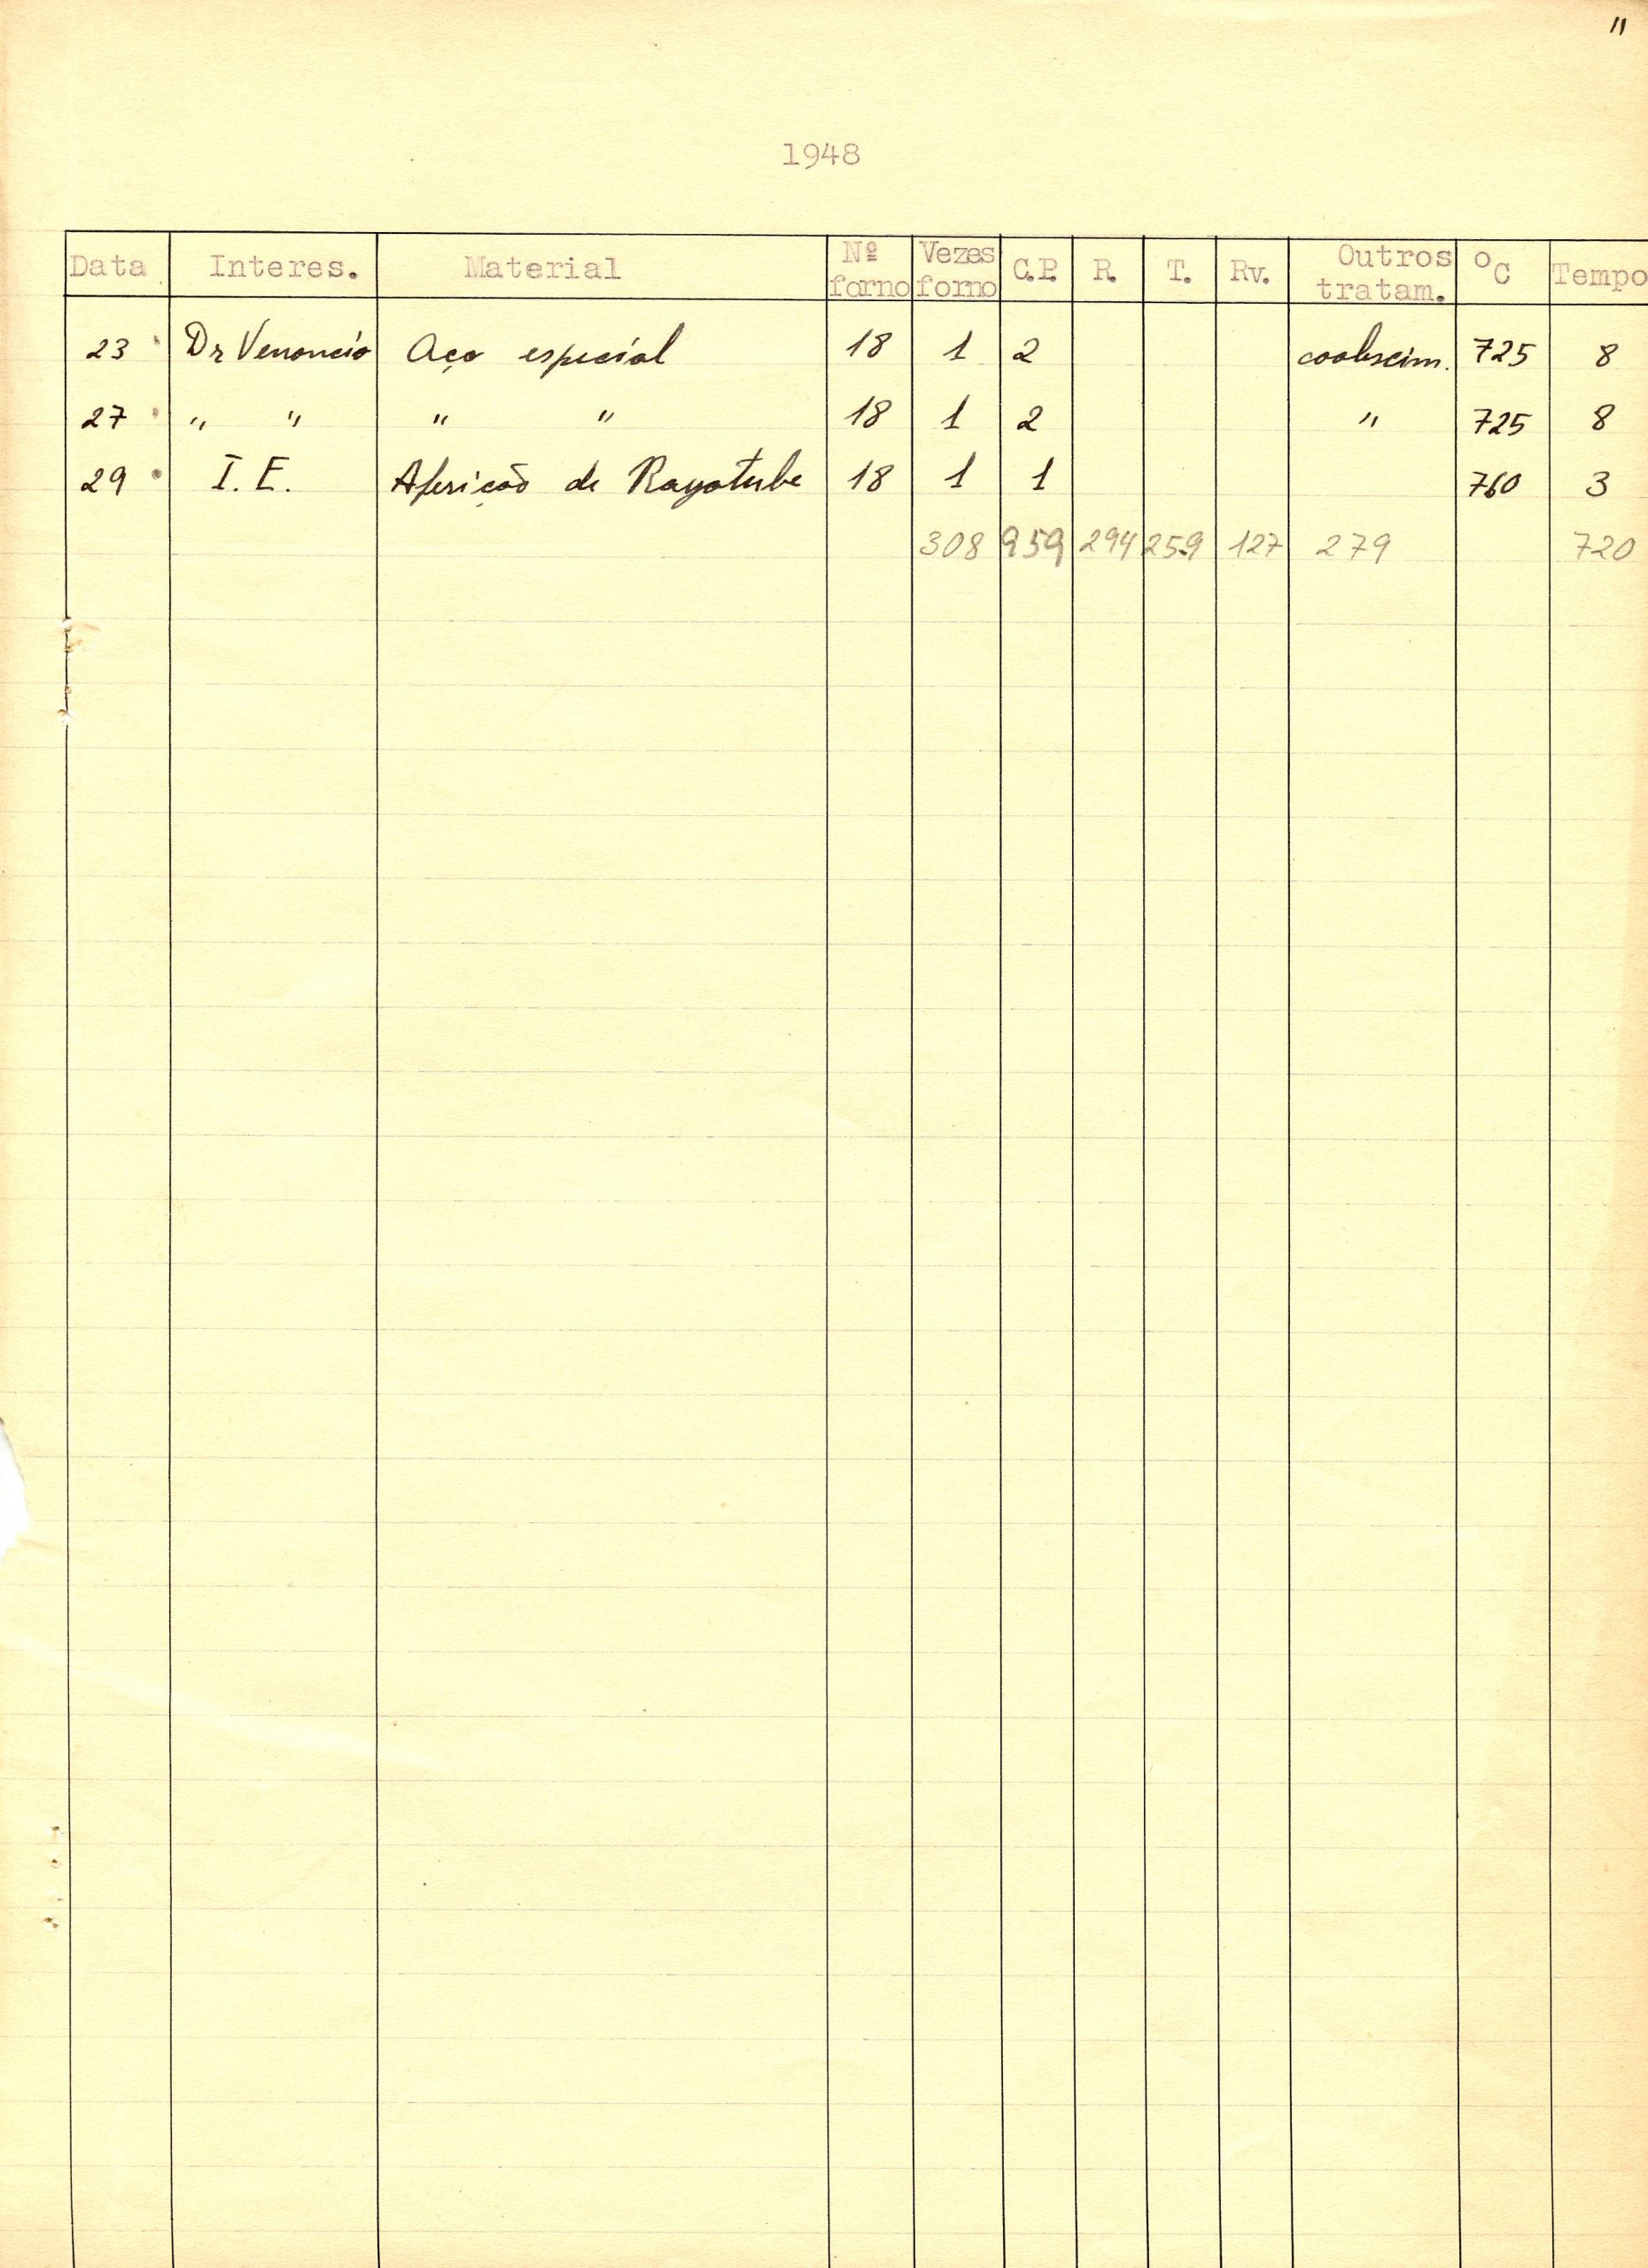 11
1948
Data Interes. Material Nº forno Vezes forno C.P. R. T. Rv. Outros tratam. ºC Tempo
23 Dr Venancio Aço especial 18 1 2 coalescim. 725 8
27 " " " " 18 1 2 " 725 8
29 I.E. Aferição de Rayotube 18 1 1 760 3
308 959 294 259 127 279 720